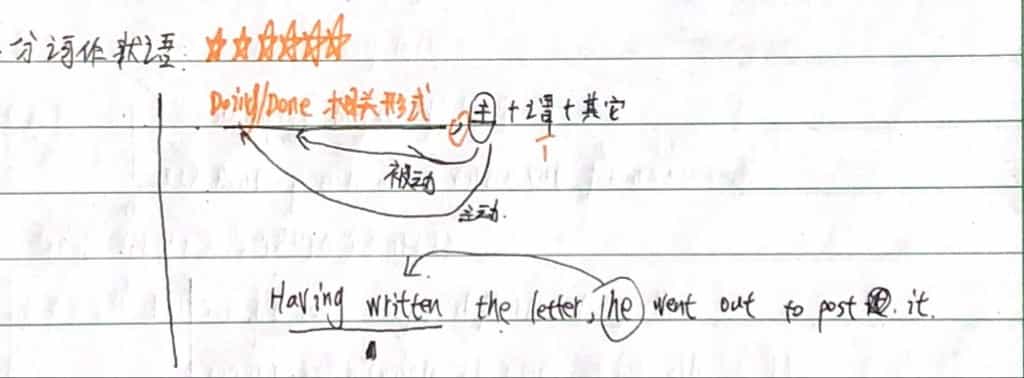 分词作状语: ☆☆☆☆☆☆
Doing/Done 相关形式 , 主 + 谓 + 其它
1
被动
主动.
Having written the letter, he went out to post it.